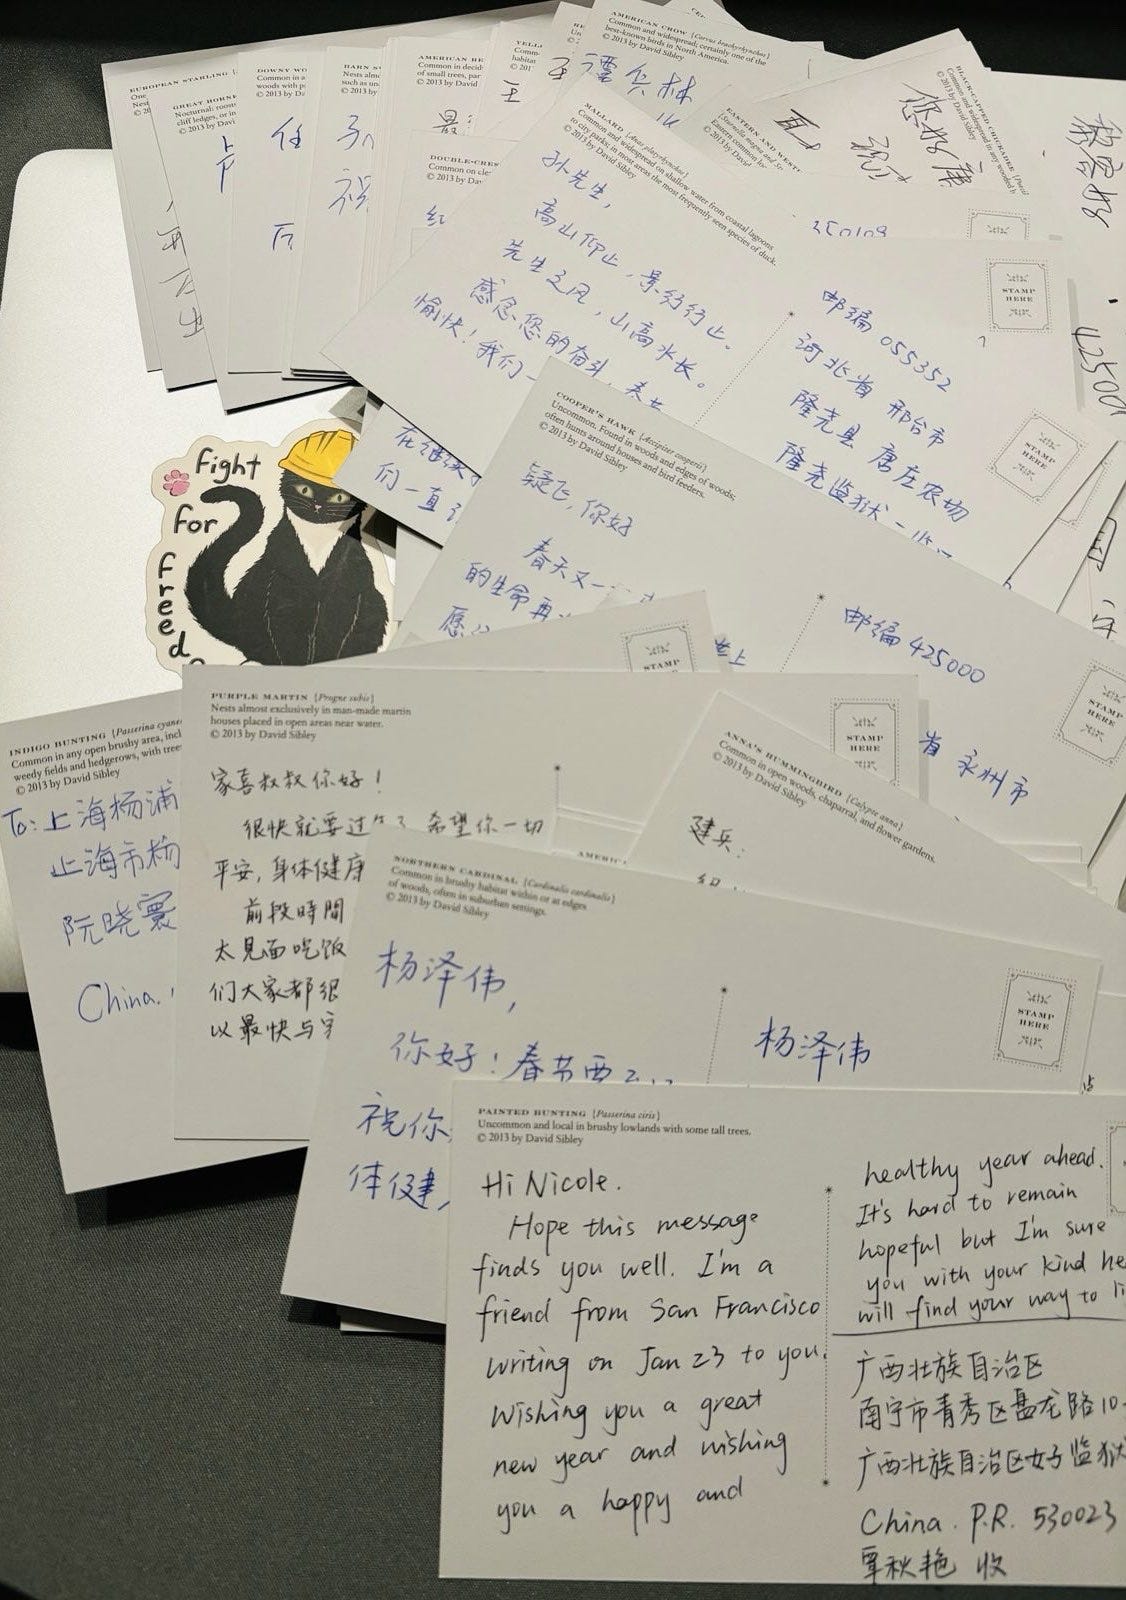 EUROPEAN STARLING
One
Nest
© 2
GREAT HORNE
Nocturnal: roosts
cliff ledges, or in
© 2013 by Davi
DOWNY WO
Common in a
woods with p
© 2013 by Da
Nests almo
such as un
© 2013 by D
AMERICAN RE
Common in decid
of small trees, par
© 2013 by David
YELL
Comm
habitat
© 201
AMERICAN CROW {Corvus brachyrhynchos}
Common and widespread; certainly one of the
best-known birds in North America.
© 2013 by David Sibley
EASTERN AND WESTE
Eastern common
© 2013 by Davi
BLACK-CAPPED CHICKADEE
Common and widespread in any wooded h
© 2013 by David Sibley
您好
黎容好
DOUBLE-CRES
Common on
© 2013 by Davi
MALLARD {Anas platyrhynchos}
Common and widespread on shallow water from coastal lagoons
to city parks; in most areas the most frequently seen species of duck.
© 2013 by David Sibley
孙先生，
高山仰止，景行行止。
先生之风，山高水长。
感念您的奋斗，春节
愉快！我们一
STAMP
HERE
邮编 055352
河北省 邢台市
隆尧县 唐庄农场
隆尧监狱 一监
42500
在继续
们一直
STAMP
HERE
Fight
for
freed
COOPER'S HAWK {Accipiter cooperii}
Uncommon. Found in woods and edges of woods;
often hunts around houses and bird feeders.
© 2013 by David Sibley
疑飞，你好
春天又一
的生命再
愿
邮编 425000
省 永州市
STAMP
HERE
STAMP
HERE
INDIGO BUNTING {Passerina cyane
Common in any open brushy area, incl
weedy fields and hedgerows, with tree
© 2013 by David Sibley
To: 上海杨浦
上海市杨
阮晓寰
China.
PURPLE MARTIN {Progne subis}
Nests almost exclusively in man-made martin
houses placed in open areas near water.
© 2013 by David Sibley
家喜叔叔你好！
很快就要过年了 希望你一切
平安，身体健康
前段時間
太見面吃饭
们大家都很
以最快与
STAMP
HERE
ANNA'S HUMMINGBIRD {Calypte anna}
Common in open woods, chaparral, and flower gardens.
© 2013 by David Sibley
建兵：
AMERIC
NORTHERN CARDINAL {Cardinalis cardinalis}
Common in brushy habitat within or at edges
of woods, often in suburban settings.
© 2013 by David Sibley
杨泽伟，
你好！春节要
祝你
体健，
STAMP
HERE
杨泽伟
PAINTED BUNTING {Passerina ciris}
Uncommon and local in brushy lowlands with some tall trees.
© 2013 by David Sibley
Hi Nicole.
Hope this message
finds you well. I'm a
friend from San Francisco
writing on Jan 23 to you.
Wishing you a great
new year and wishing
you a happy and
healthy year ahead.
It's hard to remain
hopeful but I'm sure
you with your kind he
will find your way to li
广西壮族自治区
南宁市青秀区盘龙路10
广西壮族自治区女子监狱
China. P.R. 530023
覃秋艳 收